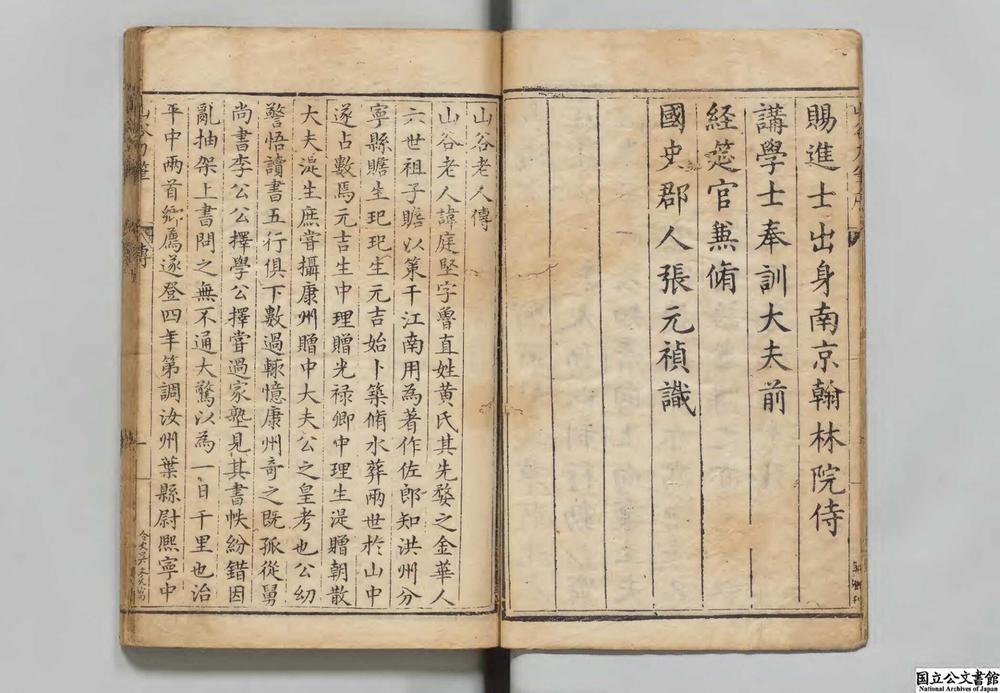 賜進士出身南京翰林院侍
講學士奉訓大夫前
経筵官兼脩
國史郡人張元禎識
山谷老人傳
山谷老人諱庭堅字魯直姓黄氏其先婺之金華人
六世祖子贍以策干江南用為著作佐郎知洪州分
寧縣贍生玘玘生元吉始卜築脩水葬兩世於山中
遂占數焉元吉生中理贈光禄卿中理生湜贈朝散
大夫湜生庶嘗攝康州贈中大夫公之皇考也公幼
警悟讀書五行俱下數過輒憶康州奇之既孤從舅
尚書李公公擇學公擇嘗過家塾見其書帙紛錯因
亂抽架上書問之無不通大驚以為一日千里也治
平中兩首鄉薦遂登四年第調汝州葉縣尉熈寧中
傳
国立公文書館
National Archives of Japan